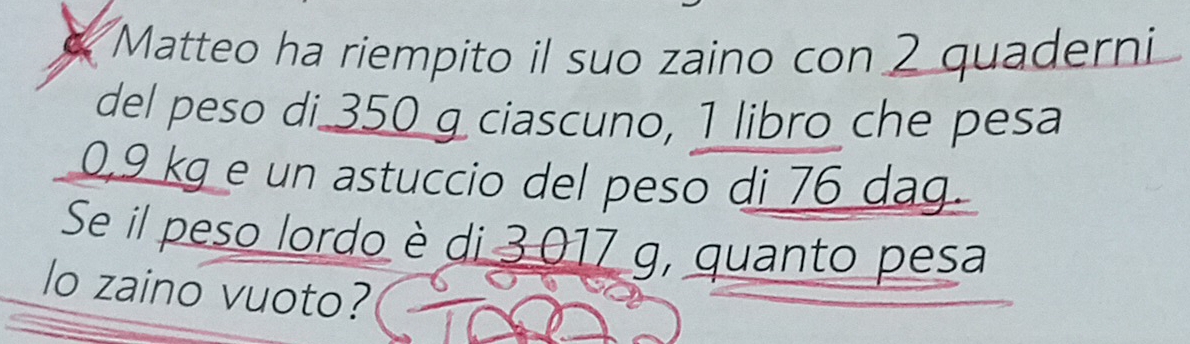 Matteo ha riempito il suo zaino con 2 quaderni
del peso di 350 g ciascuno, 1 libro che pesa
0,9 kg e un astuccio del peso di 76 dag.
Se il peso lordo è di 3 017 g, quanto pesa
lo zaino vuoto?